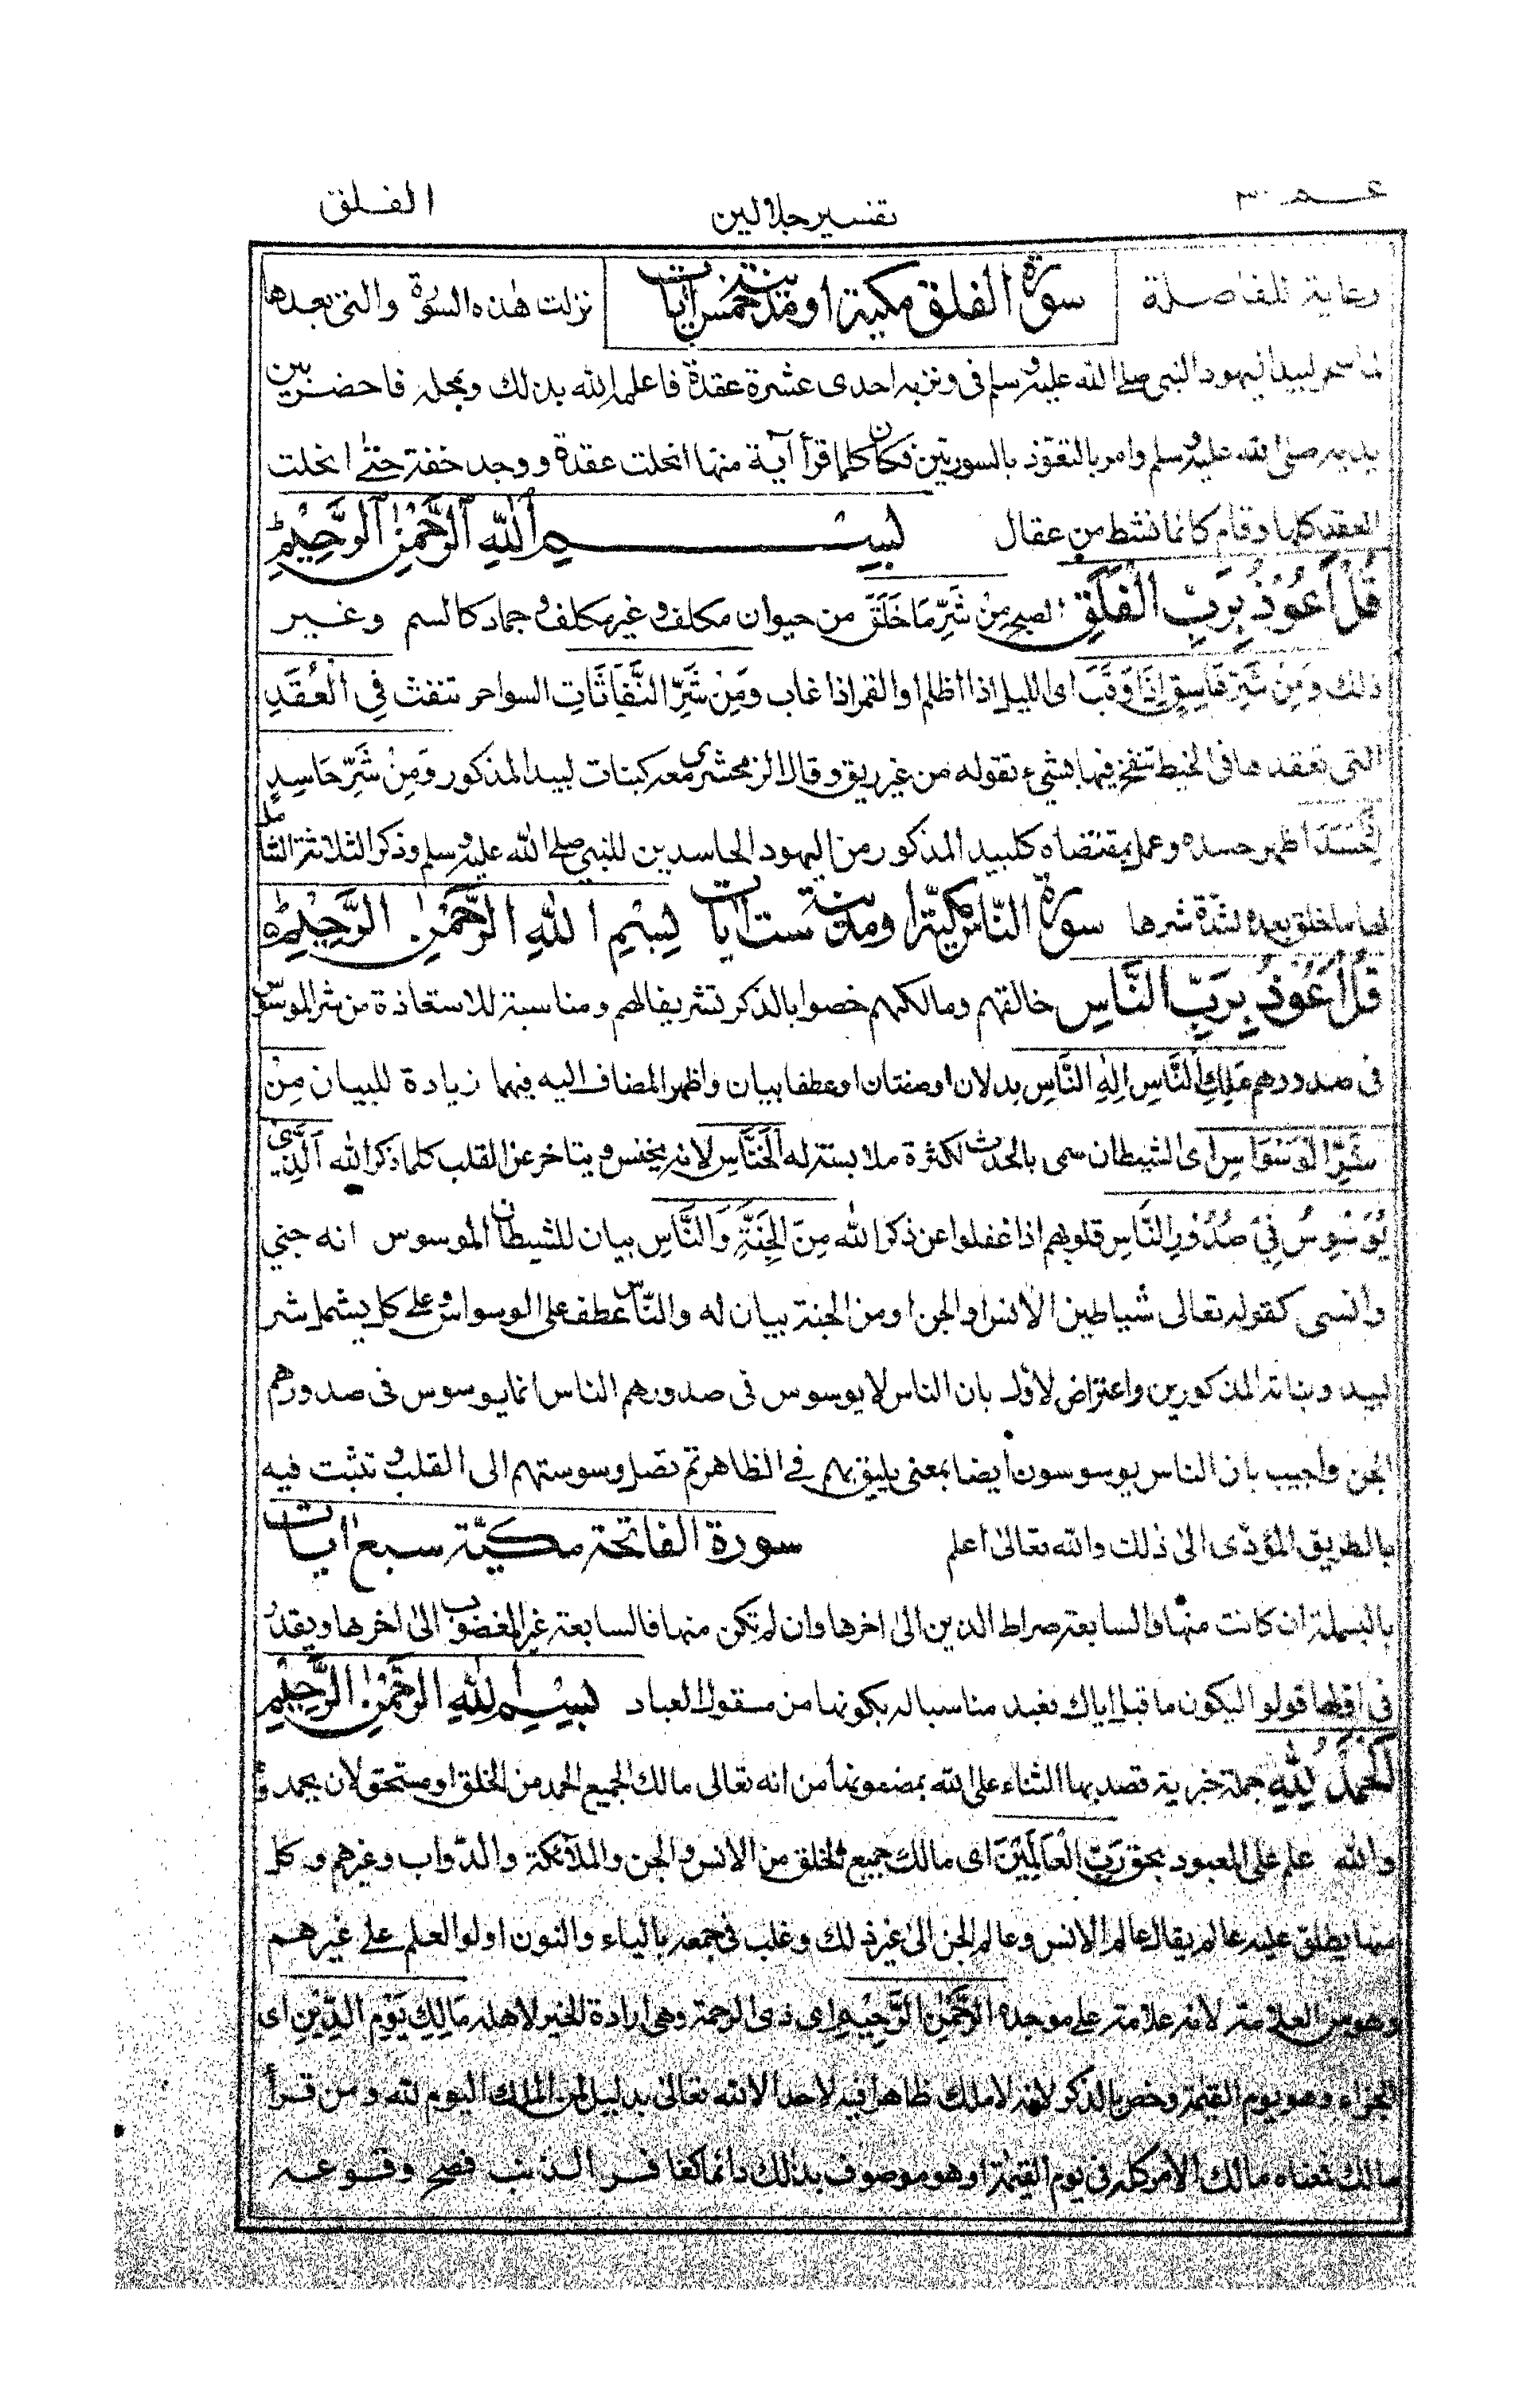 عـــم ٣٠
تفسير جلالين
الفلق
رعاية للفاصلة سورة الفلق مكية او مدنية خمس ايات نزلت هذه السورة والتى بعدها
لما سحر لبيد اليهود النبى صلى الله عليه وسلم فى وتر به احدى عشرة عقدة فاعلمه الله بذلك وبمحله فاحضر بين
يديه صلى الله عليه وسلم وامر بالتعوّذ بالسورتين فكان كلما قرأ آية منها انحلت عقدة ووجد خفة حتى انحلت
العقد كلها وقام كانما نشط من عقال بِسْمِ اللّٰهِ الرَّحْمٰنِ الرَّحِيْمِ
قُلْ اَعُوْذُ بِرَبِّ الْفَلَقِ الصبح مِنْ شَرِّ مَا خَلَقَ من حيوان مكلف و غير مكلف و جماد كالسم وغير
ذلك وَمِنْ شَرِّ غَاسِقٍ اِذَا وَقَبَ اى الليل اذا اظلم او القمر اذا غاب وَمِنْ شَرِّ النَّفّٰثَاتِ السواحر تنفث فِى الْعُقَدِ
التى تعقدها فى الخيط تنفخ فيها بشىء تقوله من غير ريق وقال الزمخشرى معه كبنات لبيد المذكور وَمِنْ شَرِّ حَاسِدٍ
اِذَا حَسَدَ اظهر حسده وعمل بمقتضاه كلبيد المذكور من اليهود الحاسدين للنبى صلى الله عليه وسلم وذكر الثلاثة الشامل
لها ما خلق بعده لشدّة شرها سورة النّاس مكيّة او مدنية ست اٰيات بِسْمِ اللّٰهِ الرَّحْمٰنِ الرَّحِيْمِ
قُلْ اَعُوْذُ بِرَبِّ النَّاسِ خالقهم ومالكهم خصوا بالذكر تشريفا لهم ومناسبة للاستعاذة من شر الموسوس
فى صدورهم مَلِكِ النَّاسِ اِلٰهِ النَّاسِ بدلان او صفتان او عطفا بيان واظهر المضاف اليه فيهما زيادة للبيان مِنْ
شَرِّ الْوَسْوَاسِ اى الشيطان سمى بالحدث لكثرة ملابسته له الْخَنَّاسِ لانه يخنس و يتاخر عن القلب كلما ذكر الله الَّذِىْ
يُوَسْوِسُ فِىْ صُدُوْرِ النَّاسِ قلوبهم اذا غفلوا عن ذكر الله مِنَ الْجِنَّةِ وَالنَّاسِ بيان للشيطان الموسوس انه جني
وانسى كقوله تعالى شياطين الانس والجن او من الجنة بيان له والنّاس عطف على الوسواس و على كل يشمل شر
لبيد وبناته المذكورين واعترض الاول بان الناس لا يوسوس فى صدورهم الناس انما يوسوس فى صدورهم
الجن واجيب بان الناس يوسوسون ايضا بمعنى يليق بهم فى الظاهر ثم تصل وسوستهم الى القلب و تثبت فيه
بالطريق المؤدّى الى ذلك والله تعالى اعلم سورة الفاتحة مكيّة سبع اٰيات
بالبسملة ان كانت منها والسابعة صراط الذين الى اخرها وان لم تكن منها فالسابعة غير المغضوب الى اخرها ويقدر
فى اولها قولوا ليكون ما قبل اياك نعبد مناسبا له بكونها من مقول العباد بِسْمِ اللّٰهِ الرَّحْمٰنِ الرَّحِيْمِ
اَلْحَمْدُ لِلّٰهِ جملة خبرية قصد بها الثناء على الله بمضمونها من انه تعالى مالك لجميع الحمد من الخلق او مستحق لان يحمدوه
والله علم على المعبود بحق رَبِّ الْعَالَمِيْنَ اى مالك جميع الخلق من الانس و الجن والملائكة والدّواب وغيرهم و كل
منها يطلق عليه عالم يقال عالم الانس وعالم الجن الى غير ذلك وغلب فى جمعه بالياء والنون اولو العلم على غيرهم
وهو من العلامة لانه علامة على موجده الرَّحْمٰنِ الرَّحِيْمِ اى ذى الرحمة وهى ارادة الخير لاهله مَالِكِ يَوْمِ الدِّيْنِ اى
الجزاء وهو يوم القيٰمة وخص بالذكر لانه لا ملك ظاهرا فيه لاحد الا لله تعالى بدليل لمن الملك اليوم لله ومن قرأ
مالك فمعناه مالك الامر كله فى يوم القيٰمة او هو موصوف بذلك دائما كغافر الذنب فصح وقوعه